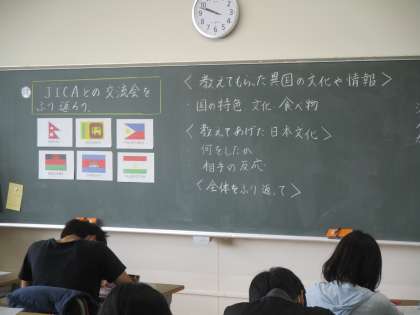 JICAとの交流会を
ふり返ろう。
〈教えてもらった異国の文化や情報〉
・国の特色 文化 食べ物
〈教えてあげた日本文化〉
・何をしたか
・相手の反応
〈全体をふり返って〉